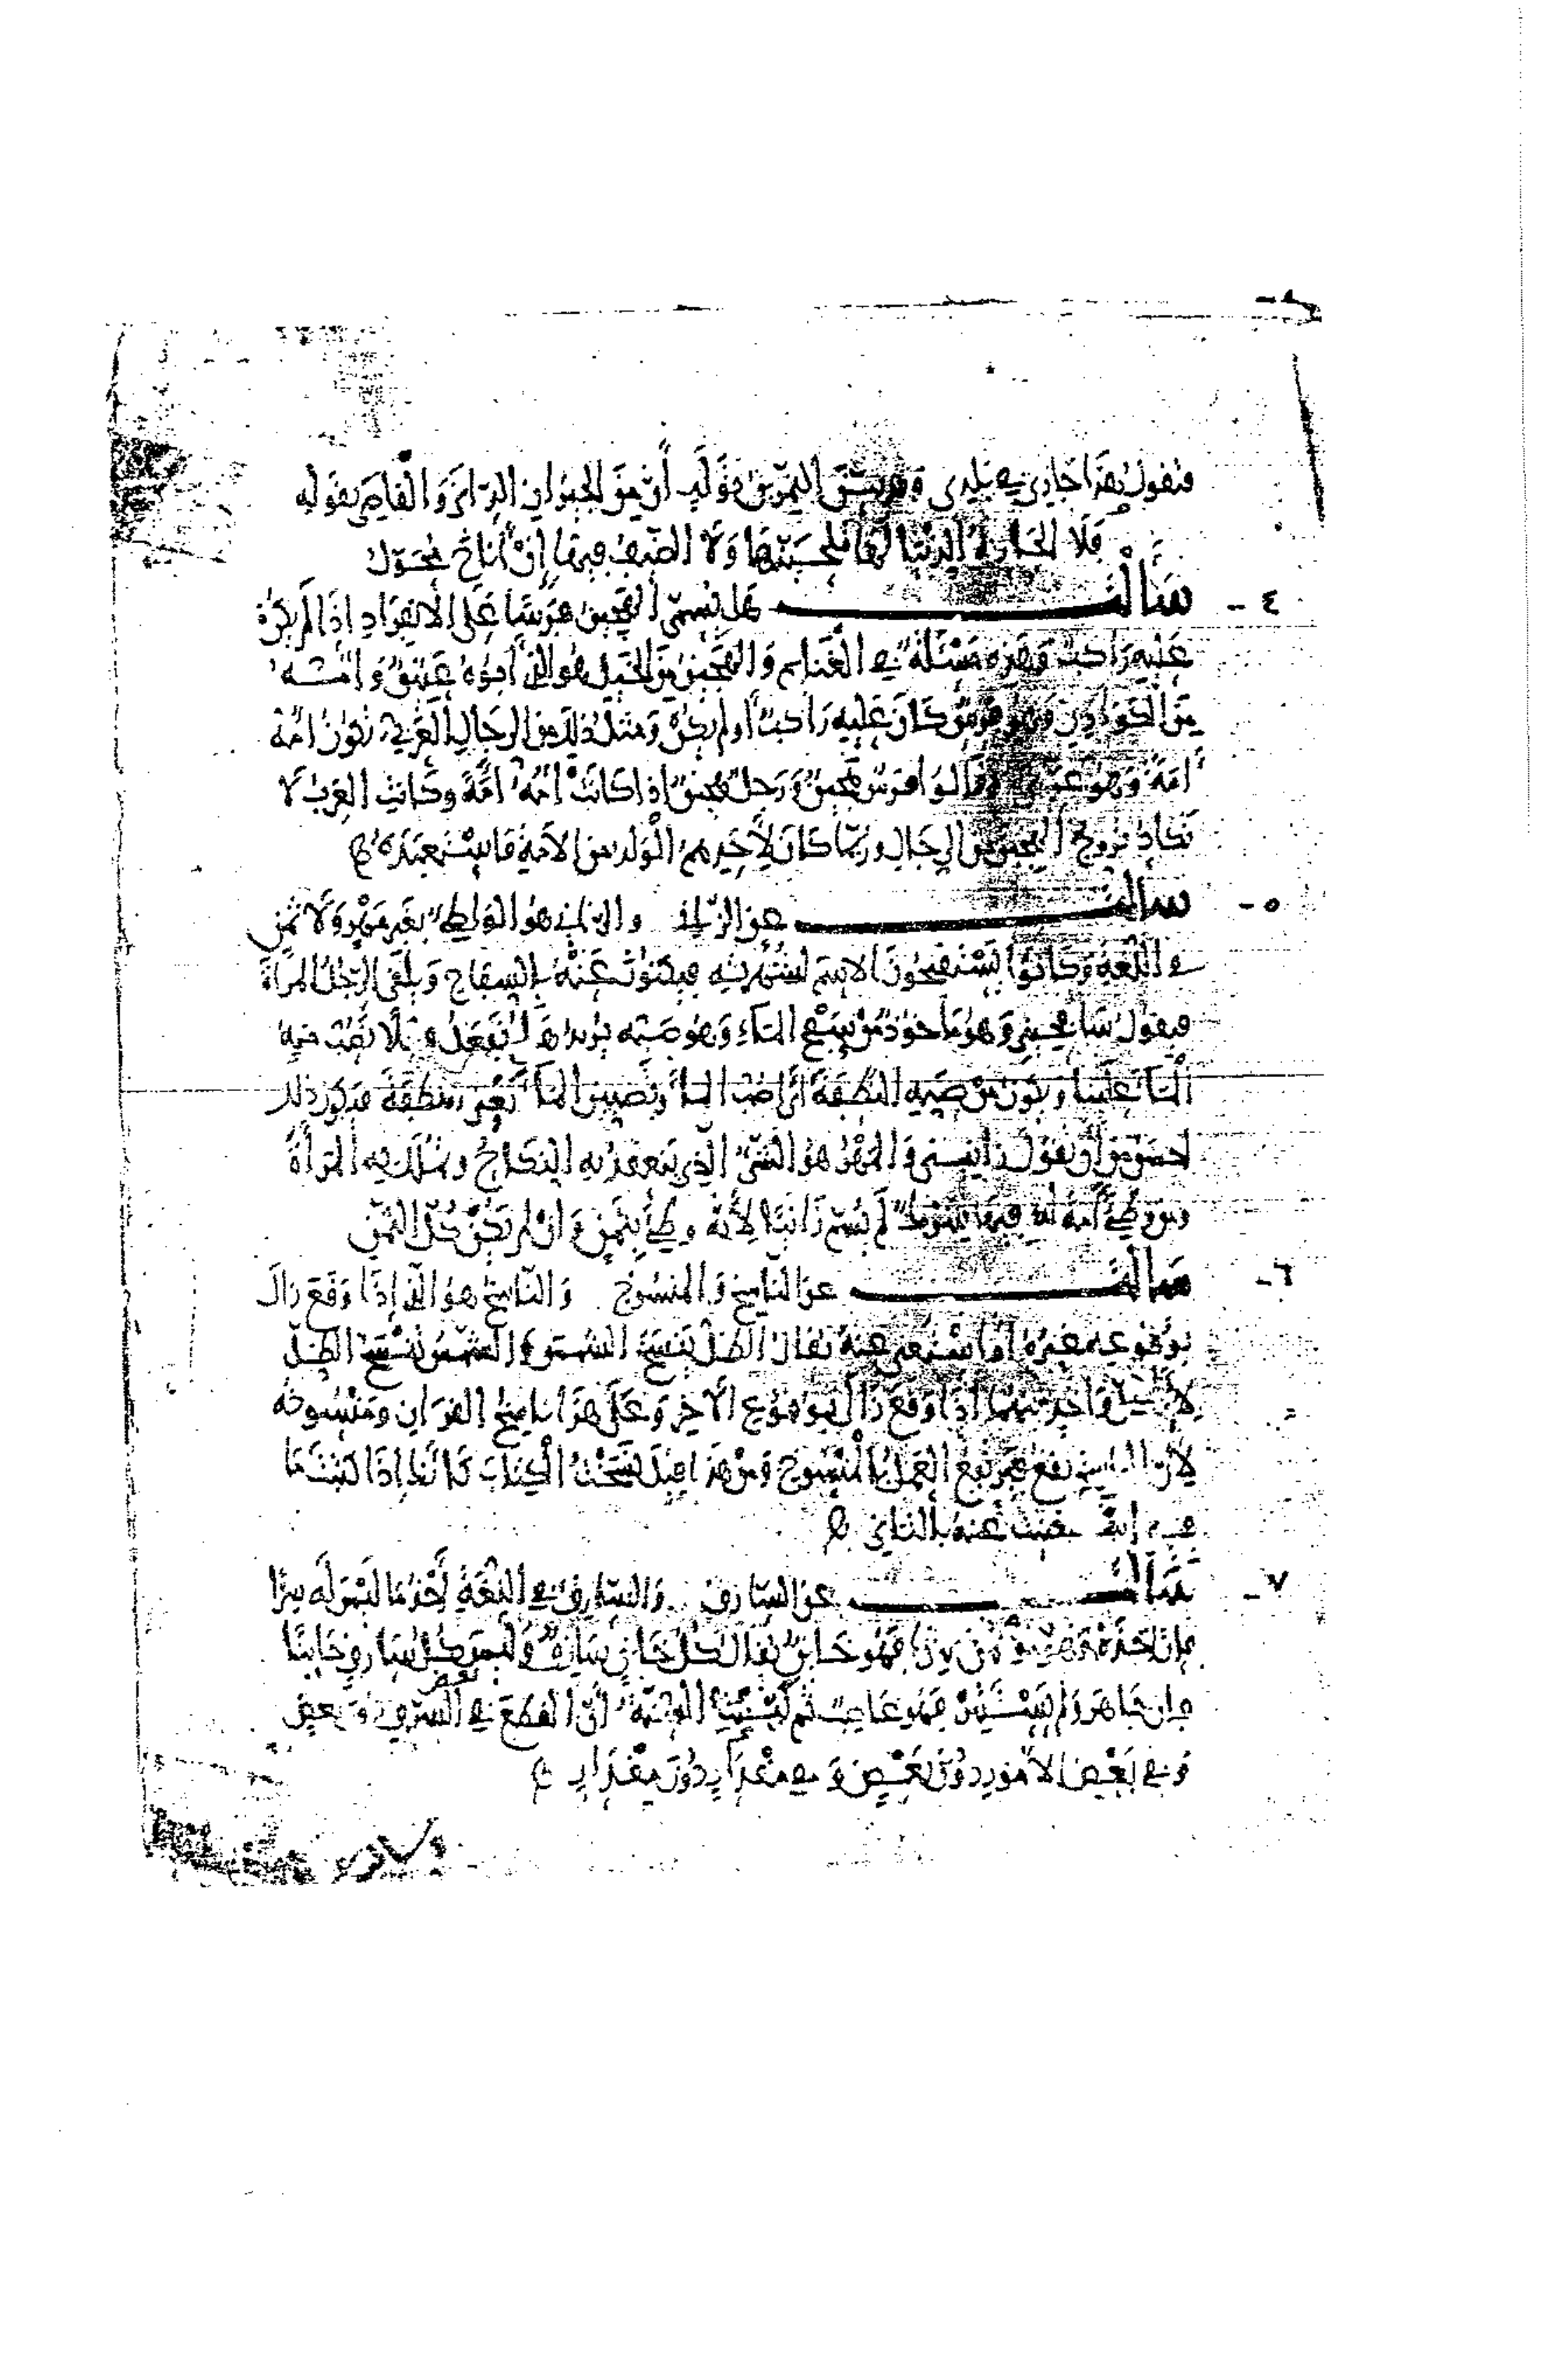 فتقول هذا جاري في بلدي وقد بين النمر بن تولب أن حق الجيران الداني والقاصي بقوله
فلا الجارة الدنيا لها تلحينها ولا الضيف فيها إن أناخ محول
٤ - سألت هل يسمى الهجين فرسا على الانفراد إذا لم يكن
عليه راكب وهذه مسئلة في الغنائم والهجين من الخيل هو الذي أبوه عتيق وأمه
من الكوادن وهو فرس كان عليه راكب أو لم يكن ومثل ذلك من الرجال العربي تكون أمه
أمة وهو عربي وقالوا فرس هجين ورجل هجين إذا كانت أمه أمة وكانت العرب لا
تكاد تزوج الهجين من الرجال وربما كان لأحدهم الولد من الأمة فاستعبده
٥ - سألت عن الزنا والزنا هو الوطء بغير مهر ولا ثمن
في اللغة وكانوا يستقبحون الاسم لشهرته فيكنون عنه بالسفاح ويلقى الرجل المرأة
فيقول سافحيني وهو مأخوذ من سفح الماء وهو صبه يريد
الماء علينا ويكون من صبه النطفة أراد صب الماء وتصبين الماء يعني النطفة فيكون ذلك
أحسن من أن يقول زانيني والمهر هو الشيء الذي ينعقد به النكاح ويملك به المرأة
ومن وطئ أمة له فيها شرط لم يسم زانيا لأنه وطئ بثمن وإن لم يكن كل الثمن
٦ - سألت عن الناسخ والمنسوخ والناسخ هو الذي إذا وقع زال
بوقوعه غيره أو استغني عنه يقال الظل ينسخ الشمس والشمس تنسخ الظل
لأن كل واحد منهما إذا وقع زال بوقوع الآخر وعلى هذا ناسخ القرآن ومنسوخه
لأن الناسخ يقع فيرتفع العمل بالمنسوخ ومن هذا قيل نسخت الكتاب لأنك إذا كتبت ما
فيه استغنيت عنه بالثاني
٧ - سألت عن السارق والسارق في اللغة آخذ ما ليس له سرا
فإن أخذ من فهو خائن يقال كل خائن سارق وليس كل سارق خائنا
وإن جاهر ولم يستسر فهو غاصب ثم بينت السنة أن القطع في بعض السرق دون بعض
وفي بعض الأمور دون بعض وفي مقدار دون مقدار